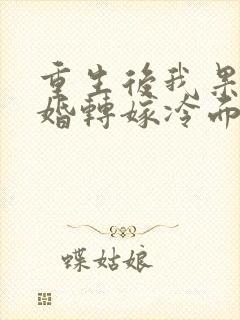 重生後我果
婚轉嫁冷面
蝶姑娘